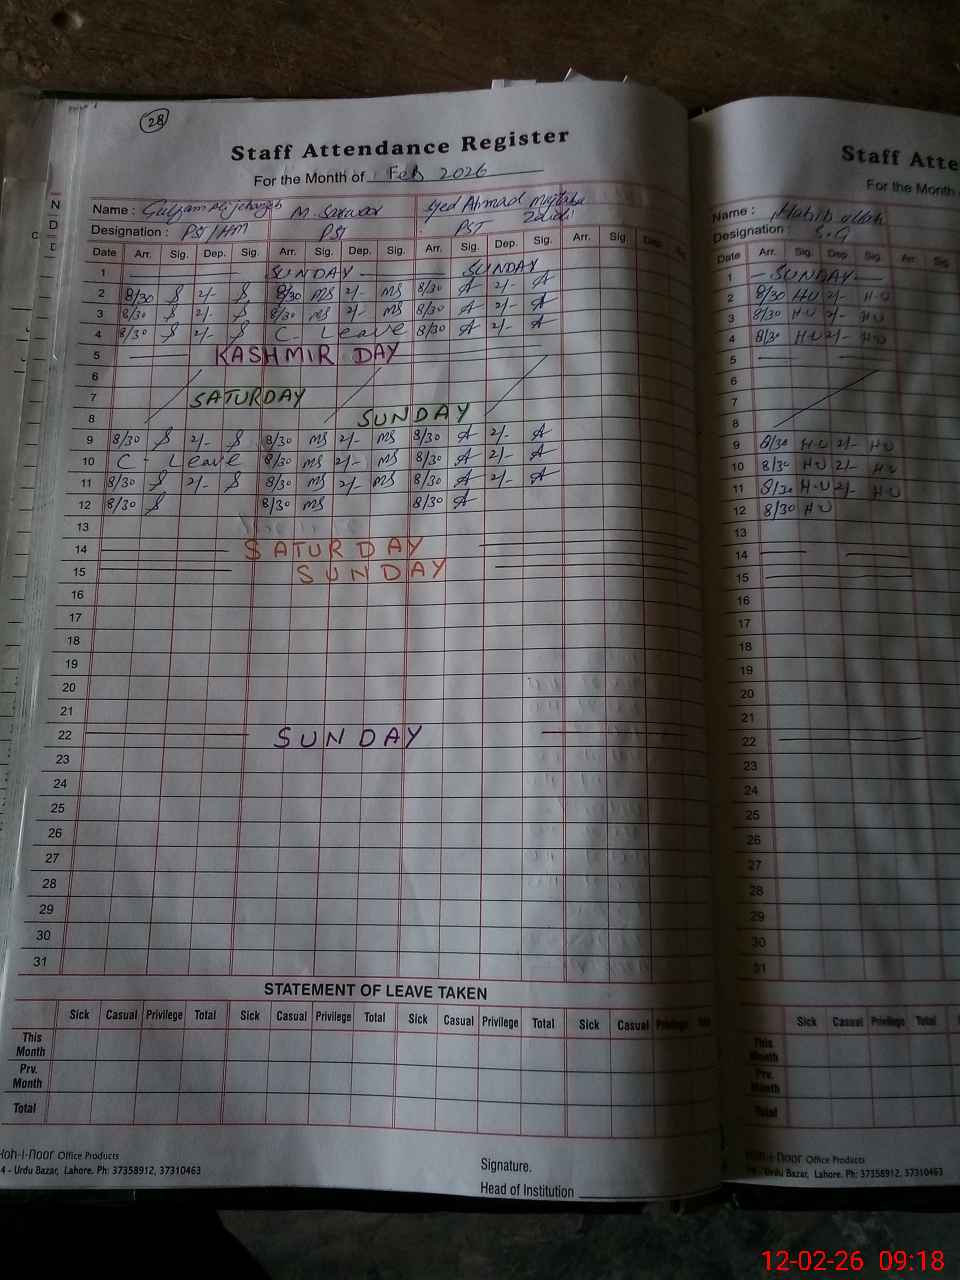 28
Staff Attendance Register
For the Month of Feb 2026
Name : Gulzam Ali Jehangeb M. Sarwar Syed Ahmad Mujtaba Zaidi
Designation : PST/HM PST PST
Date Arr. Sig. Dep. Sig. Arr. Sig. Dep. Sig. Arr. Sig. Dep. Sig. Arr. Sig. Dep.
1 SUNDAY SUNDAY
2 8/30 2/- 8/30 MS 2/- MS 8/30 A 2/- A
3 8/30 2/- 8/30 MS 2/- MS 8/30 A 2/- A
4 8/30 2/- C. Leave 8/30 A 2/- A
5 KASHMIR DAY
6
7 SATURDAY
8 SUNDAY
9 8/30 2/- 8/30 MS 2/- MS 8/30 A 2/- A
10 C - Leave 8/30 MS 2/- MS 8/30 A 2/- A
11 8/30 2/- 8/30 MS 2/- MS 8/30 A 2/- A
12 8/30 8/30 MS 8/30 A
13
14 SATURDAY
15 SUNDAY
16
17
18
19
20
21
22 SUNDAY
23
24
25
26
27
28
29
30
31
STATEMENT OF LEAVE TAKEN
Sick Casual Privilege Total Sick Casual Privilege Total Sick Casual Privilege Total Sick Casual Privilege
This Month
Prv. Month
Total
Koh-i-noor Office Products
4 - Urdu Bazar, Lahore. Ph: 37358912, 37310463
Signature.
Head of Institution
Staff Atte
For the Month
Name : Habib ullah
Designation : S.G
Date Arr. Sig. Dep. Sig. Arr. Sig.
1 - SUNDAY -
2 8/30 H-U 2/- H-U
3 8/30 H-U 2/- H-U
4 8/30 H-U 2/- H-U
5
6
7
8
9 8/30 H-U 2/- H-U
10 8/30 H-U 2/- H-U
11 8/30 H-U 2/- H-U
12 8/30 H-U
13
14
15
16
17
18
19
20
21
22
23
24
25
26
27
28
29
30
31
Sick Casual Privilege Total
This Month
Prv. Month
Total
Koh-i-noor Office Products
Urdu Bazar, Lahore. Ph: 37358912, 37310463
12-02-26 09:18